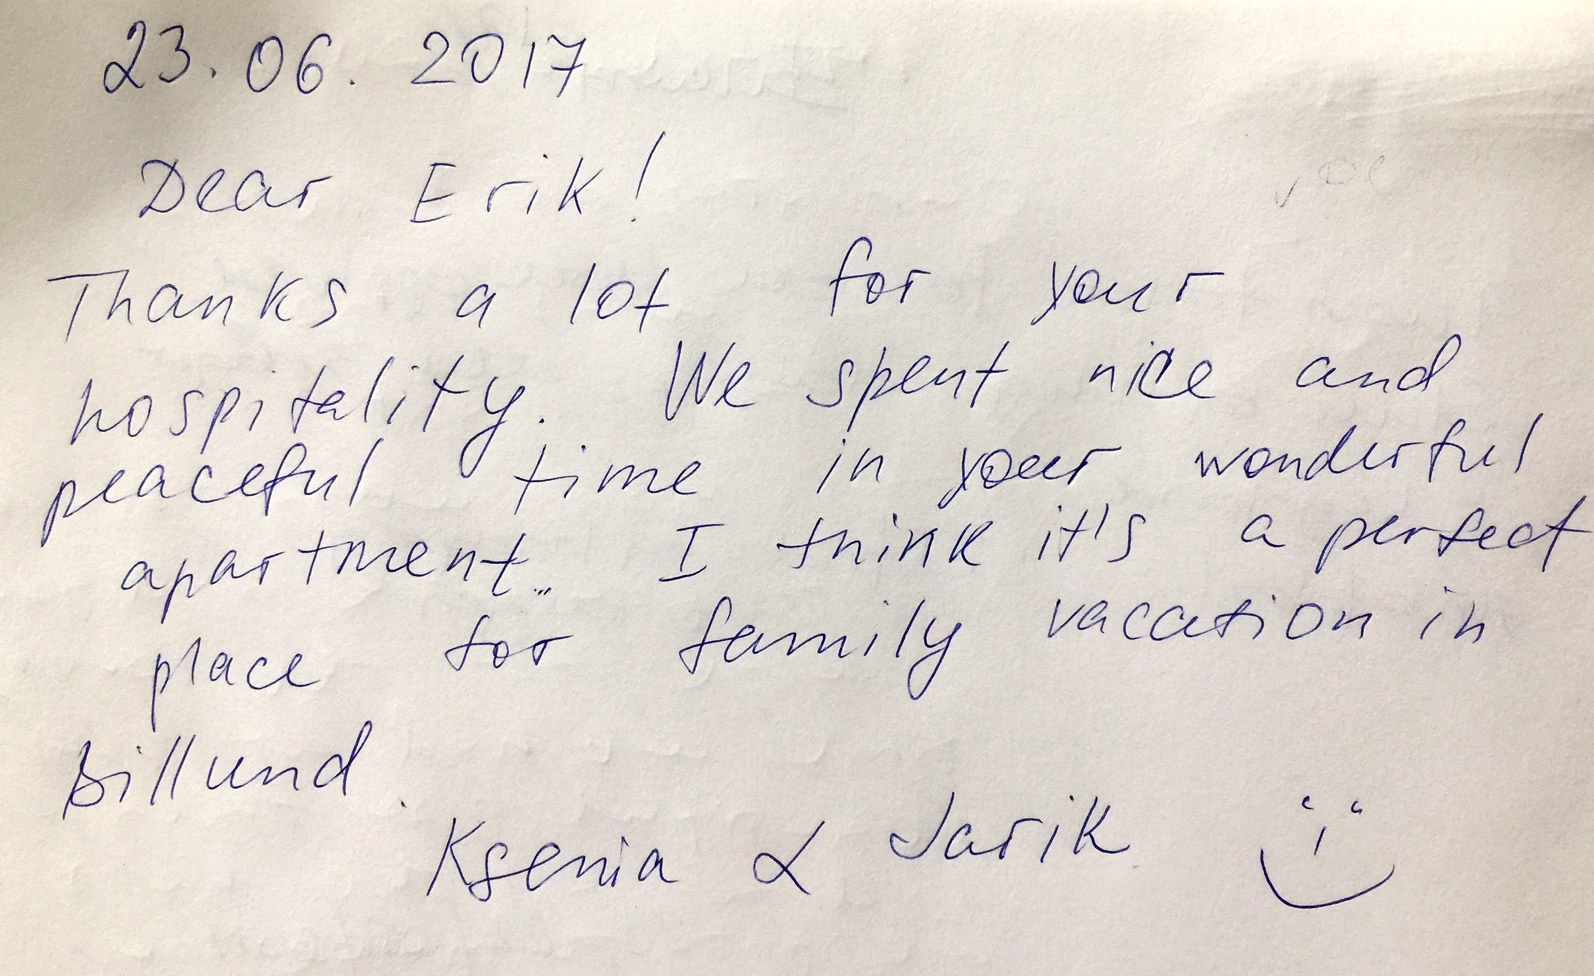 23.06.2017
Dear Erik!
Thanks a lot for your
hospitality. We spent nice and
peaceful time in your wonderful
apartment. I think it's a perfect
place for family vacation in
Billund.
Ksenia & Jarik